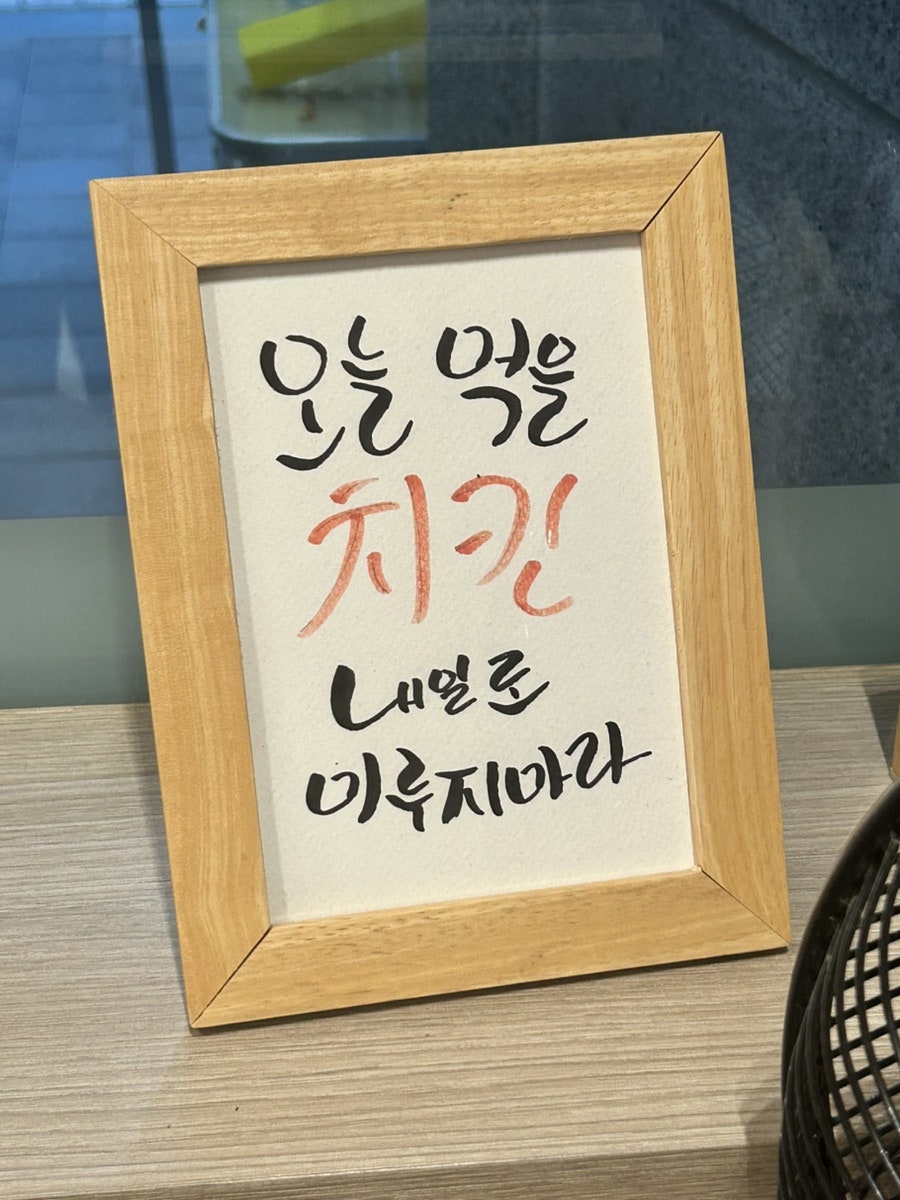 오늘 먹을
치킨
내일로
미루지마라